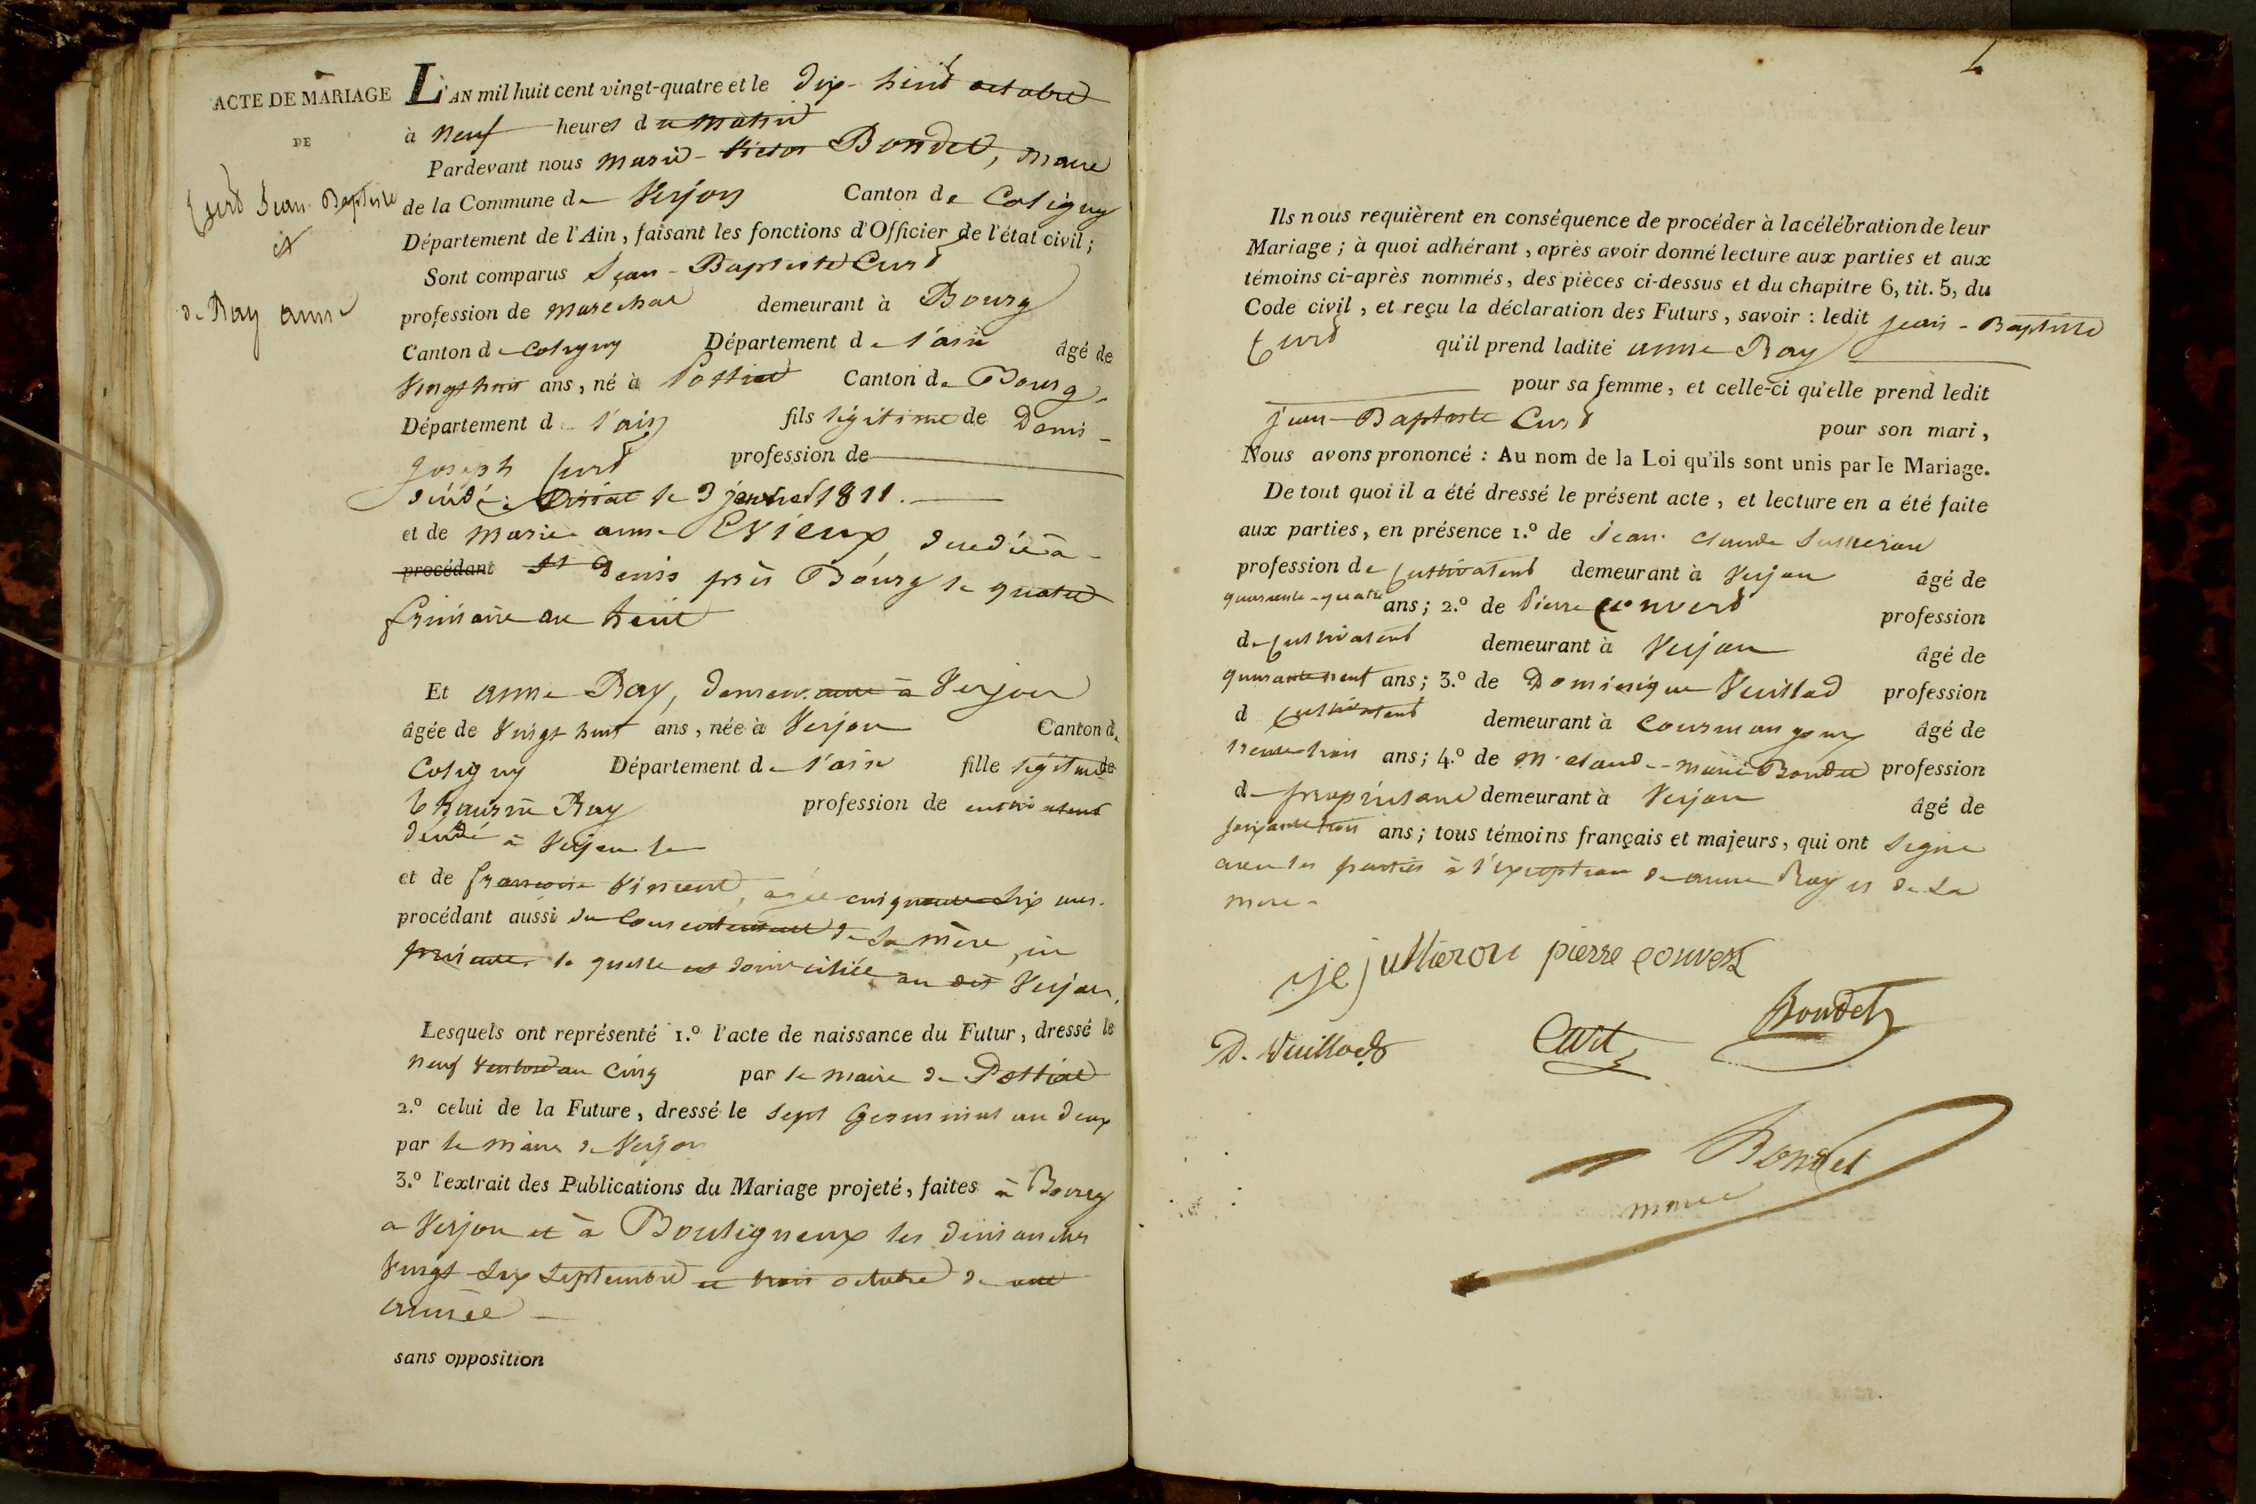 ACTE DE MARIAGE
DE
Curt Jean Baptiste
et
de Ray anne
L'AN mil huit cent vingt-quatre et le dix-huit octobre
à neuf heures du matin
Pardevant nous marie-victor Bondet, maire
de la Commune de Verjon Canton de Coligny
Département de l'Ain, faisant les fonctions d'Officier de l'état civil;
Sont comparus Jean-Baptiste Curt
profession de marechal demeurant à Bourg
Canton de Coligny Département de l'ain âgé de
vingt huit ans, né à Canton de Bourg,
Département de l'ain fils légitime de Denis-
Joseph Curt profession de
décédé le 3 janvier 1811.
et de marie anne Evieux, décédée à
procédant St Denis près Bourg le quatre
frimaire an huit
Et anne Ray, demeurante à Verjon
âgée de vingt huit ans, née à Verjon Canton de
Coligny Département de l'ain fille légitime de
Ray profession de cultivateur
décédé à Verjon le
et de francoise Vincent, agée cinquante six ans.
procédant aussi du consentement de sa mère, ici
présente, la quelle est domiciliée au dit Verjon.
Lesquels ont représenté 1.º l'acte de naissance du Futur, dressé le
neuf ventose an cinq par le maire de
2.º celui de la Future, dressé le sept Germinal an deux
par le maire de Verjon
3.º l'extrait des Publications du Mariage projeté, faites à Bourg
a Verjon et à Bouligneux les dimanches
vingt-six septembre et trois octobre de cette
année
sans opposition
Ils nous requièrent en conséquence de procéder à la célébration de leur
Mariage; à quoi adhérant, après avoir donné lecture aux parties et aux
témoins ci-après nommés, des pièces ci-dessus et du chapitre 6, tit. 5, du
Code civil, et reçu la déclaration des Futurs, savoir : ledit jean-Baptiste
Curt qu'il prend ladite anne Ray
pour sa femme, et celle-ci qu'elle prend ledit
jean-Baptiste Curt pour son mari,
Nous avons prononcé : Au nom de la Loi qu'ils sont unis par le Mariage.
De tout quoi il a été dressé le présent acte, et lecture en a été faite
aux parties, en présence 1.º de Jean claude Jullieron
profession de cultivateur demeurant à Verjon âgé de
quarante-quatre ans; 2.º de Pierre convert profession
de cultivateur demeurant à Verjon âgé de
quarante neuf ans; 3.º de Dominique Vuillod profession
de cultivateur demeurant à Courmangoux âgé de
trente trois ans; 4.º de M. claude-marie Bondet profession
de propriétaire demeurant à Verjon âgé de
soixante trois ans; tous témoins français et majeurs, qui ont signé
avec les parties à l'exception de anne Ray et de sa
mere.
je jullieron pierre convert
D. Vuillod Curt Bondet
Bondet
maire